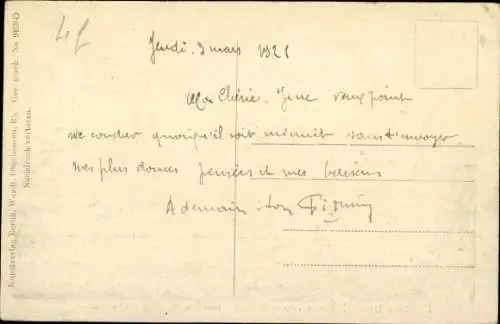 Jeudi. 3 mars 1921
Ma Chérie. Je ne veux point
me coucher quoiqu'il soit minuit sans t'envoyer
mes plus douces pensées et mes baisers
A demain ton
Nachdruck verboten.
Ges. gesch. No